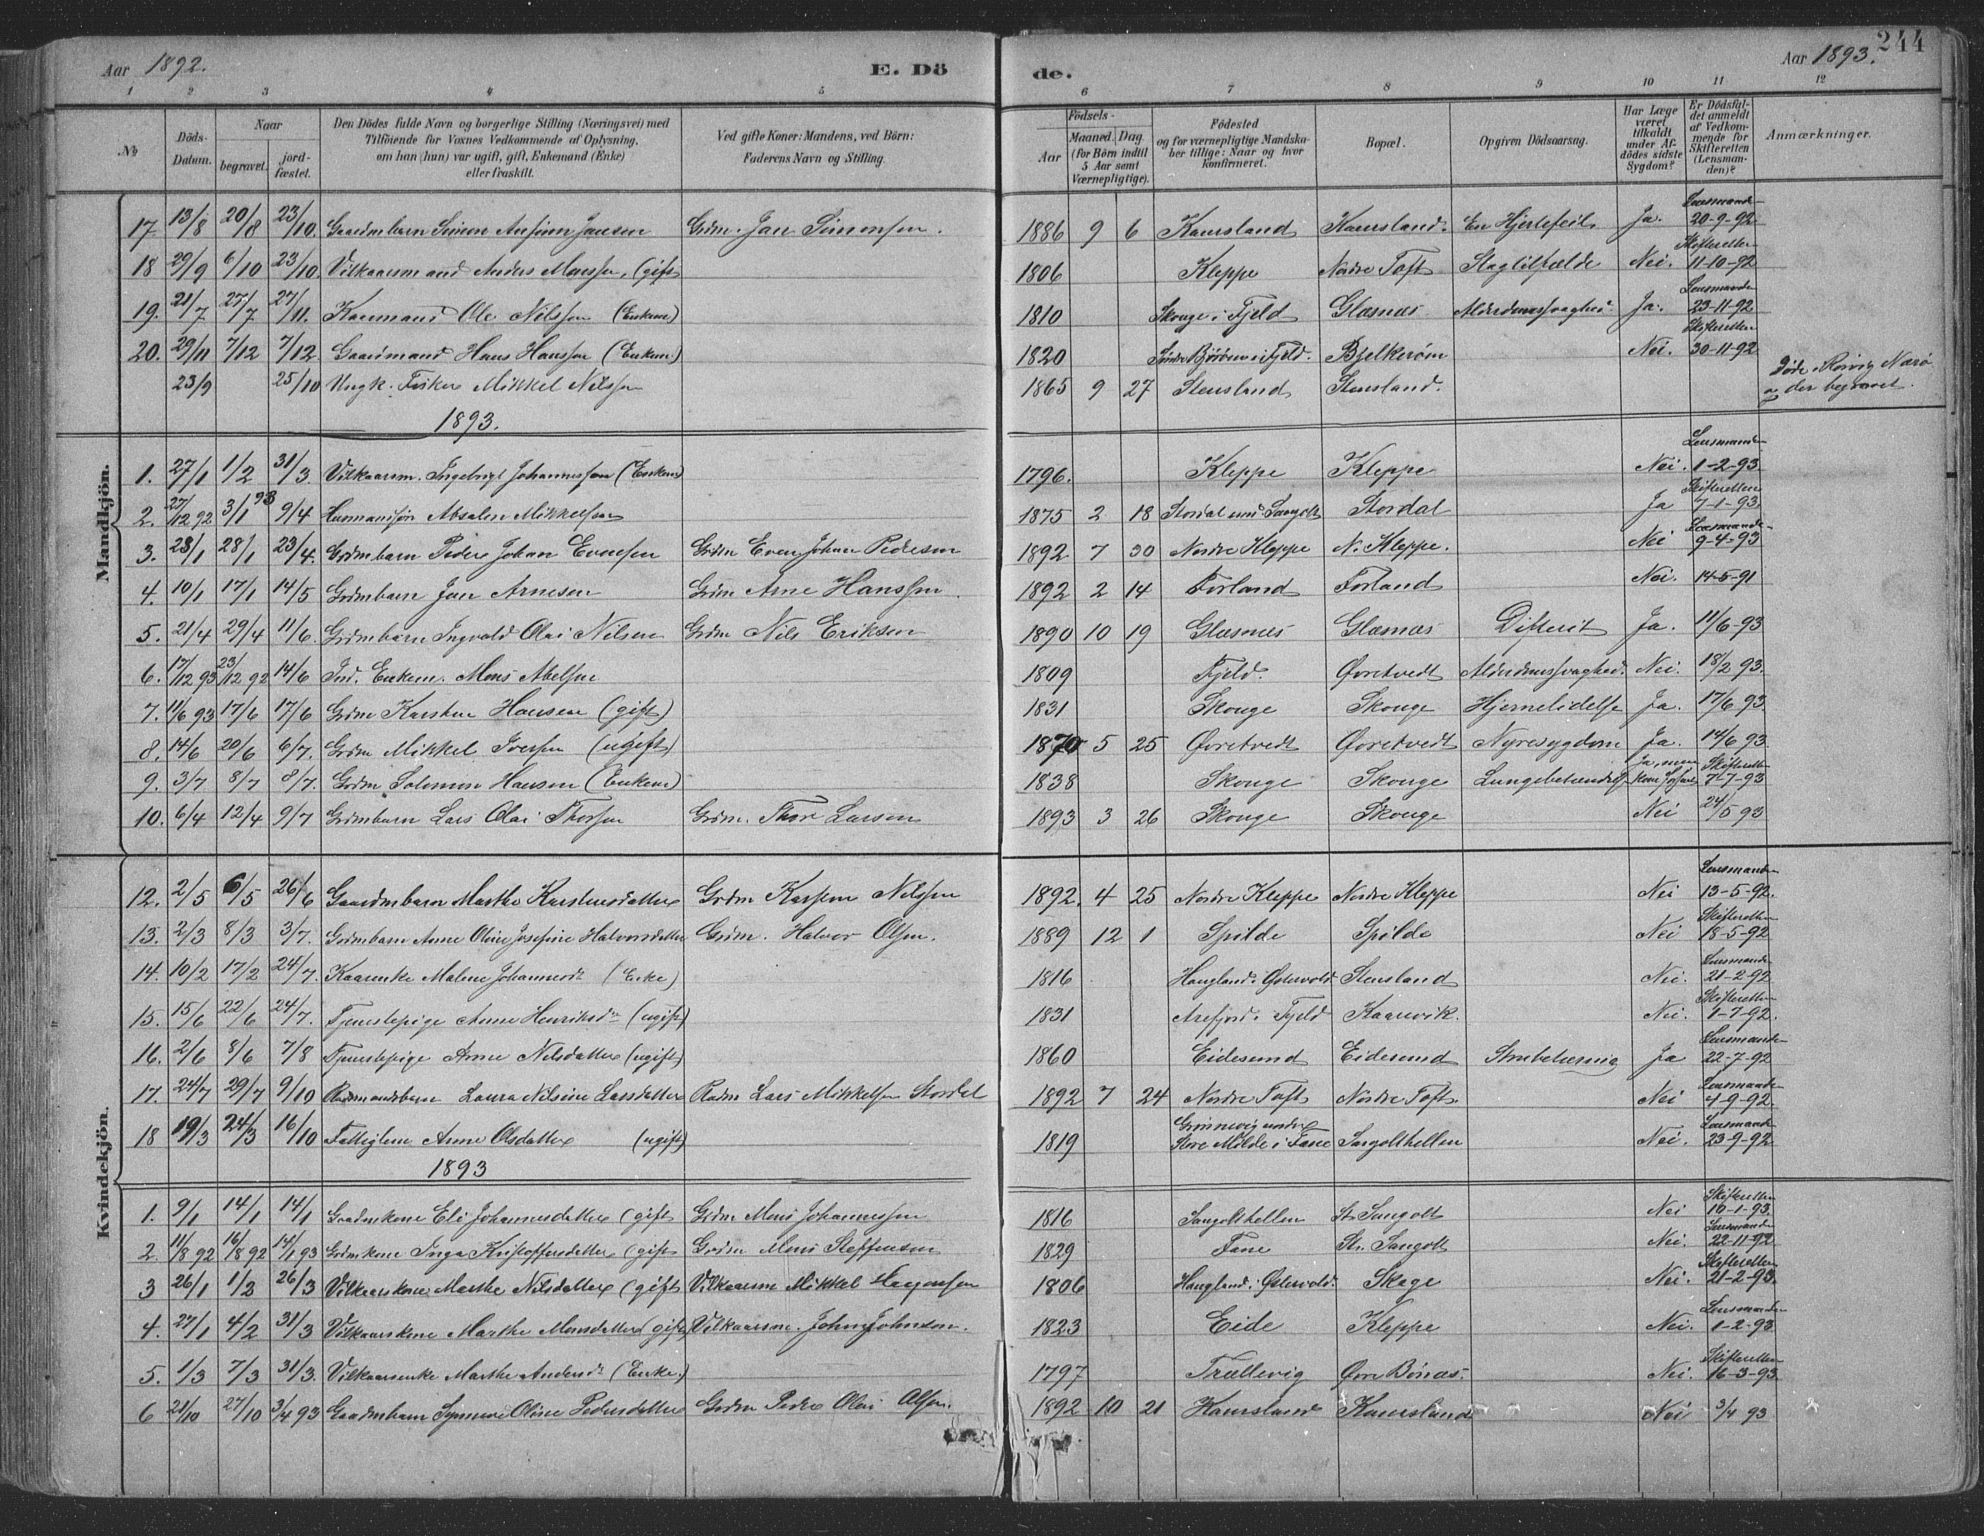 Aar 1892. E. Dö de. Aar 1893. 244
1 2 3 4 5 6 7 8 9 10 11 12
№ Döds-Datum. Naar begravet. jordfæstet. Den Dödes fulde Navn og borgerlige Stilling (Næringsvei) med Tilföiende for Voxnes Vedkommende af Oplysning, om han (hun) var ugift, gift, Enkemand (Enke) eller fraskilt. Ved gifte Koner: Mandens, ved Börn: Faderens Navn og Stilling. Födsels- Aar Maaned Dag (for Börn indtil 5 Aar samt Værnepligtige). Födested og for værnepligtige Mandskaber tillige: Naar og hvor konfirmeret. Bopæl. Opgiven Dödsaarsag. Har Læge været tilkaldt under Afdödes sidste Sygdom? Er Dödsfaldet anmeldt af Vedkommende for Skifteretten (Lensmanden)? Anmærkninger.
Mandkjön.
17 13/8 20/8 23/10. Gaardmbarn Simon Jansen Grdm. Jan Simonsen. 1886 9 6 Kaursland Kaursland. En Hjertefeil Ja. Lensmanden 20-9-92
18 29/9 6/10 23/10. Vilkaarsmand Anders Monssen, (gift 1806 Kleppe Nordre Toft Slagtilfælde Nei. Skifteretten 11-10-92
19. 21/7 27/7 27/11. Kaarmand Ole Nilssen (Enkem) 1810 Skouge i Fjeld Glæsnæs Alderdomssvaghed. Ja. Lensmanden 23-11-92
20. 29/11 7/12 7/12. Gaardmand Hans Hanssen (Enkem.) 1820 i Fjeld. Bjelkerøen Nei. Skifteretten 30-11-92
23/9 25/10 Ungk. Fisker Mikkel Nilssen 1865 9 27 Stensland Stensland. Døde i Rørvig Nærø og der begravet.
1893.
1. 27/1 1/2 31/3 Vilkaarsm. Ingebrigt Johannessen (Enkem) 1796. Kleppe Kleppe Nei. Lensmanden 1-2-93
2. 27/12 92 3/1 93 9/4 Husmandssøn Absalon Mikkelsen 1875 2 18 Stordal und. Sangolt Stordal Ja Skifteretten 7-1-93
3. 23/1 28/1 23/4. Grdmbarn Peder Johan Evensen Grdm Even Johan Pedersen 1892 7 30 Nordre Kleppe N. Kleppe. Nei Lensmanden 9-4-93
4. 10/1 17/1 14/5 Grdmbarn Jan Arnesen Grdm Arne Hanssen. 1892 2 14 Forland Forland Nei. 14-5-91
5. 21/4 29/4 11/6. Grdmbarn Ingvald Olai Nilsen Grdm Nils Eriksen 1890 10 19 Glæsnæs Glæsnæs Difterit Ja. 11/6-93
6. 17/12 93 23/12 92 14/6 Ind. Enkem. Mons Abelsen 1809 Fjeld. Øvretvedt Alderdomssvaghed. Nei. 18/2 93
7. 11/6 93 17/6 17/6 Grdm Karsten Hansen (gift) 1831 Skouge Skouge Hjernelidelse Ja. 17/6 93
8. 14/6 20/6 6/7. Grdm Mikkel Iversen (ugift) 1870 5 25 Øvretvedt Øvretvedt Nyresygdom Ja. 14/6 93
9. 3/7 8/7 8/7. Grdm Salomon Hansen (Enkem) 1838 Skouge Skouge Lungebetændelse Ja, men kom Skifteretten 7-7-93
10. 6/4 12/4 9/7 Grdmbarn Lars Olai Thorsen Grdm. Thor Larsen 1893 3 26 Skouge Skouge Nei 24/5 93
Kvindekjön.
12. 2/5 6/5 26/6 Gaardmbarn Marthe Karstensdatter Grdm Karsten Nilssen 1892. 4 25 Nordre Kleppe Nordre Kleppe Nei Lensmanden 13-5-92.
13. 2/3 8/3 3/7. Grdmbarn Anne Oline Josefine Halvorsdatter Grdm. Halvor Olsen. 1889 12 1 Spilde Spilde Nei Skifteretten 18-5-92
14. 10/2 17/2 24/7 Kaarenke Malene Johannesdr (Enke) 1816 Haugland i Østervold Stensland Nei. Lensmanden 21-2-92
15. 15/6 22/6 24/7. Tjenestepige Anne Henriksdr (ugift) 1831 Arefjord i Fjeld Kaarvik. Nei. Skifteretten 1-7-92.
16. 2/6 8/6 7/8 Tjenestepige Anne Nilsdatter (ugift) 1860 Eidesund Eidesund Strubetæring Ja Lensmanden 22-7-92
17. 24/7 29/7 9/10 Radmandsbarn Laura Nilsine Larsdatter Radm Lars Mikkelsen Stordal 1892 7 24 Nordre Toft Nordre Toft. Nei Lensmanden 4-9-92.
18 19/3 24/3 16/10 Fattiglem Anne Olsdatter (ugift) 1819 Grinnevig under Store Milde i Fane Sangolthellen Nei. Lensmand 23-9-92
1893
1. 9/1 14/1 14/1 Gaardmkone Eli Johannesdatter (gift Grdm Mons Johannessen 1816 Sangolthellen St. Sangolt Nei Skifteretten 10-1-93.
2. 11/8 92 16/8 92 14/1 93 Grdmkone Inga Kristoffersdatter (gift Grdm Mons Steffensen 1829 Fane St. Sangolt Nei. Lensmanden 22-11-92
3 26/1 1/2 26/3 Vilkaarskone Marthe Nilsdatter (gift Vilkaarsm Mikkel Haagenssen 1806 Haugland i Østervold. Skage Nei. Skifteretten 21-2-93.
4. 27/1 4/2 31/3 Vilkaarskone Marthe Monsdatter (gift Vilkaarsm. John Johnson. 1823 Eide Kleppe Nei. Lensmanden 1-2-93
5. 1/3 7/3 31/3. Vilkaarsenke Marthe Andersdr (Enke.) 1797 Trællevig Øvre Bønæs. Nei. Skifteretten 16-3-93
6 21/10 27/10 3/4 93 Gaardmbarn Synneve Oline Pedersdatter Grdm Peder Olai Olsen. 1892 10 21 Kaursland Kaursland Nei 3/4 93